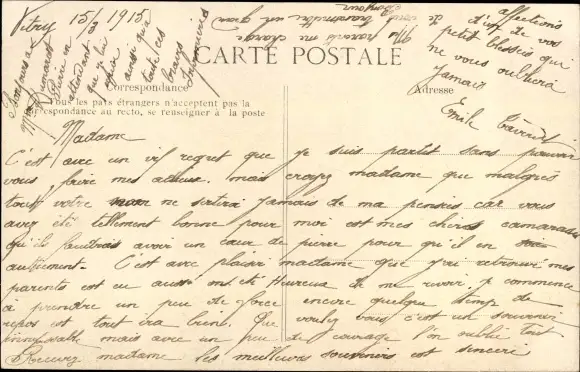 Vitry 15/3 1915
CARTE POSTALE
Correspondance
Tous les pays étrangers n'acceptent pas la
correspondance au recto, se renseigner à la poste
Adresse
Madame
C'est avec un vif regret que je suis partit sans pouvoir
vous faire mes adieux. mais croyez madame que malgrés
tout votre nom ne sortira jamais de ma pensée car vous
avez été tellement bonne pour moi est mes chers camarades
qu'ils faudrais avoir un cœur de pierre pour qu'il en sois
autrement. C'est avec plaisir madame que j'ai retrouvé mes
parents est eu aussi ont été Heureux de me revoir. je commence
à prendre un peu de force encore quelque temps de
repos est tout ira bien. Que voulez vous c'est un souvenir
mais avec un peu de courage l'on oublie tout
Recevez madame les meilleurs souvenirs est sincère
affections
d'un de vos
petit blessés qui
ne vous oubliera
jamais
Emile
Bonjours a
Mme
en
attendant
que je lui
ainsi qua
toute ces
braves
Infirmières
Mes parents me charge
de vous transmettre un grand
Bonjour